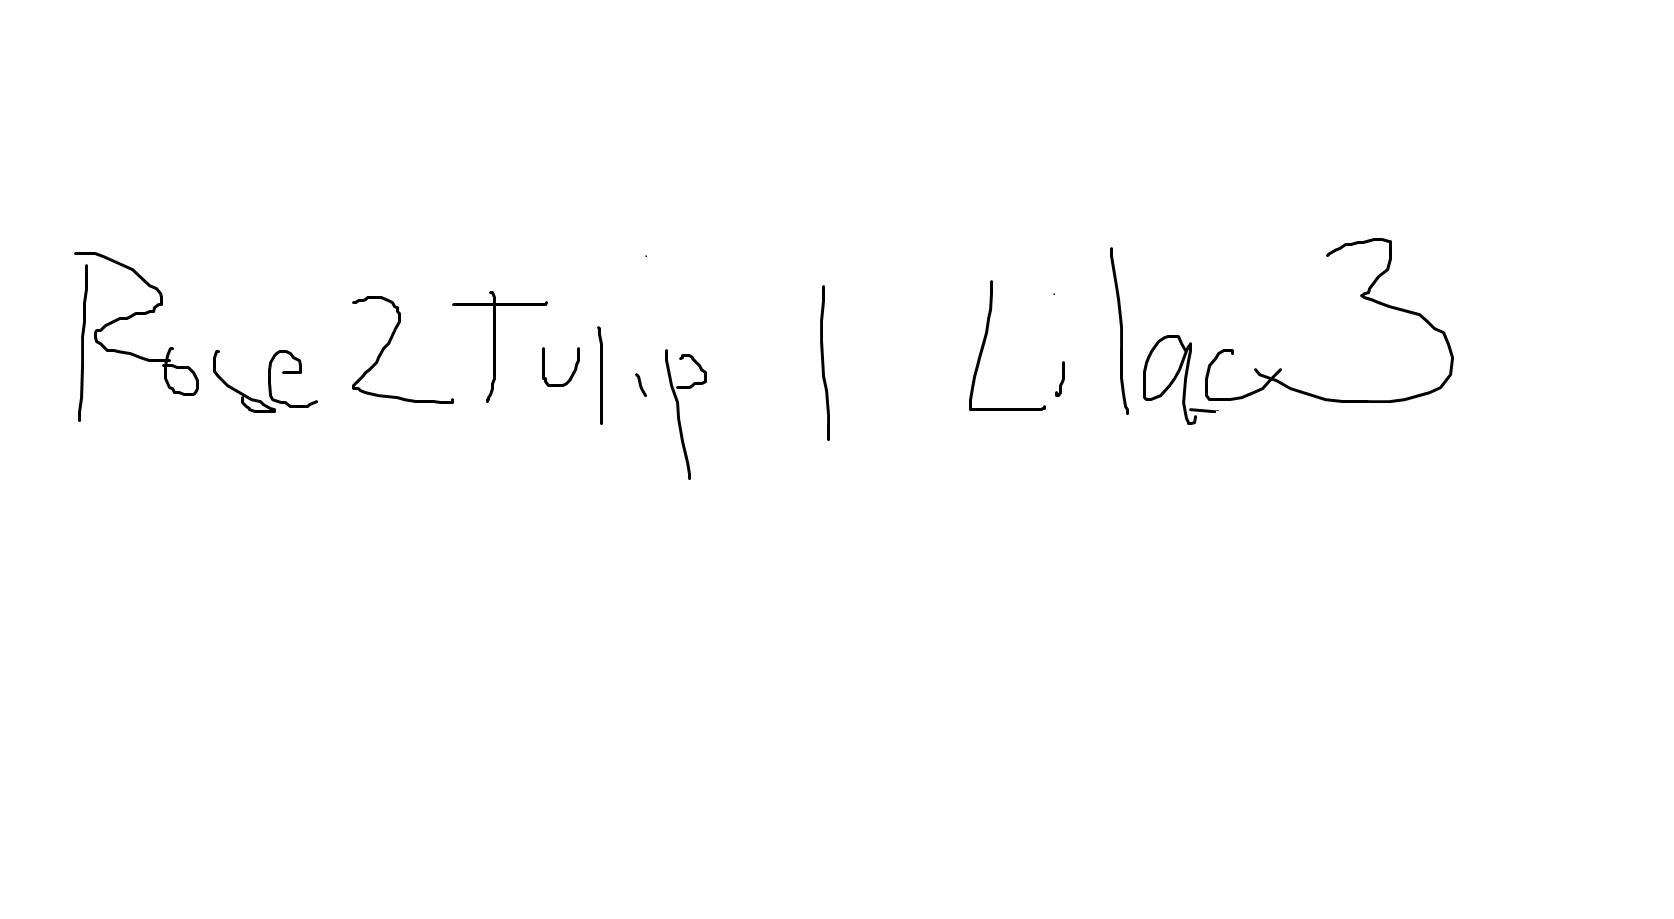 Rose 2 Tulip 1 Lilac 3